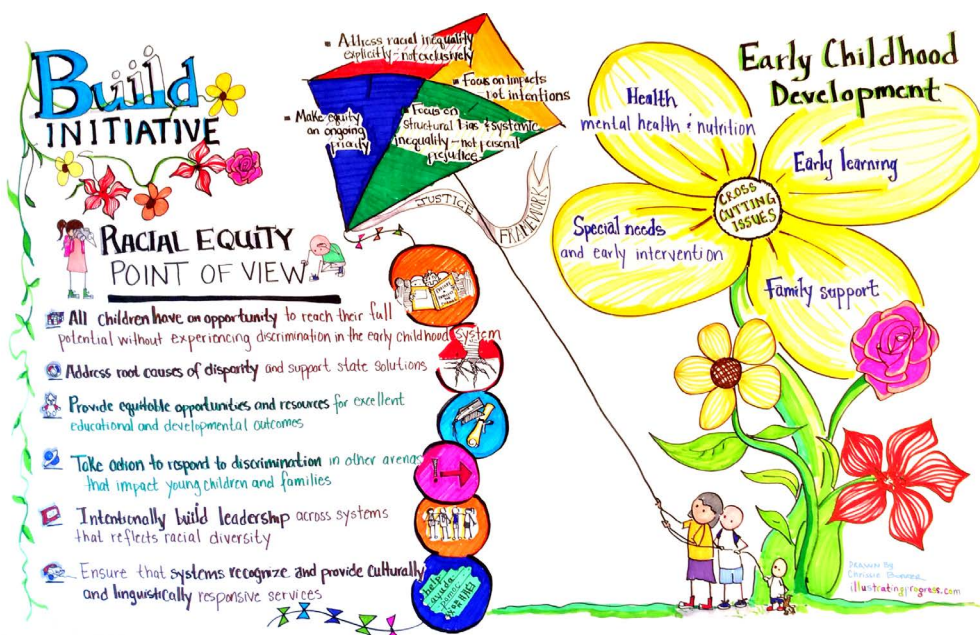 Build
INITIATIVE
RACIAL EQUITY
POINT OF VIEW
All children have an opportunity to reach their full
potential without experiencing discrimination in the early childhood system
Address root causes of disparity and support state solutions
Provide equitable opportunities and resources for excellent
educational and developmental outcomes
Take action to respond to discrimination in other arenas
that impact young children and families
Intentionally build leadership across systems
that reflects racial diversity
Ensure that systems recognize and provide culturally
and linguistically responsive services
help
ayuda
pomoc
▪ Address racial inequality
explicitly - not exclusively
▪ Focus on impacts
not intentions
▪ Make equity
an ongoing
priority
▪ Focus on
structural bias & systemic
inequality - not personal
prejudice
JUSTICE
FRAMEWORK
Early Childhood
Development
Health
mental health & nutrition
Early learning
CROSS
CUTTING
ISSUES
Special needs
and early intervention
Family support
DRAWN By
illustratingprogress.com